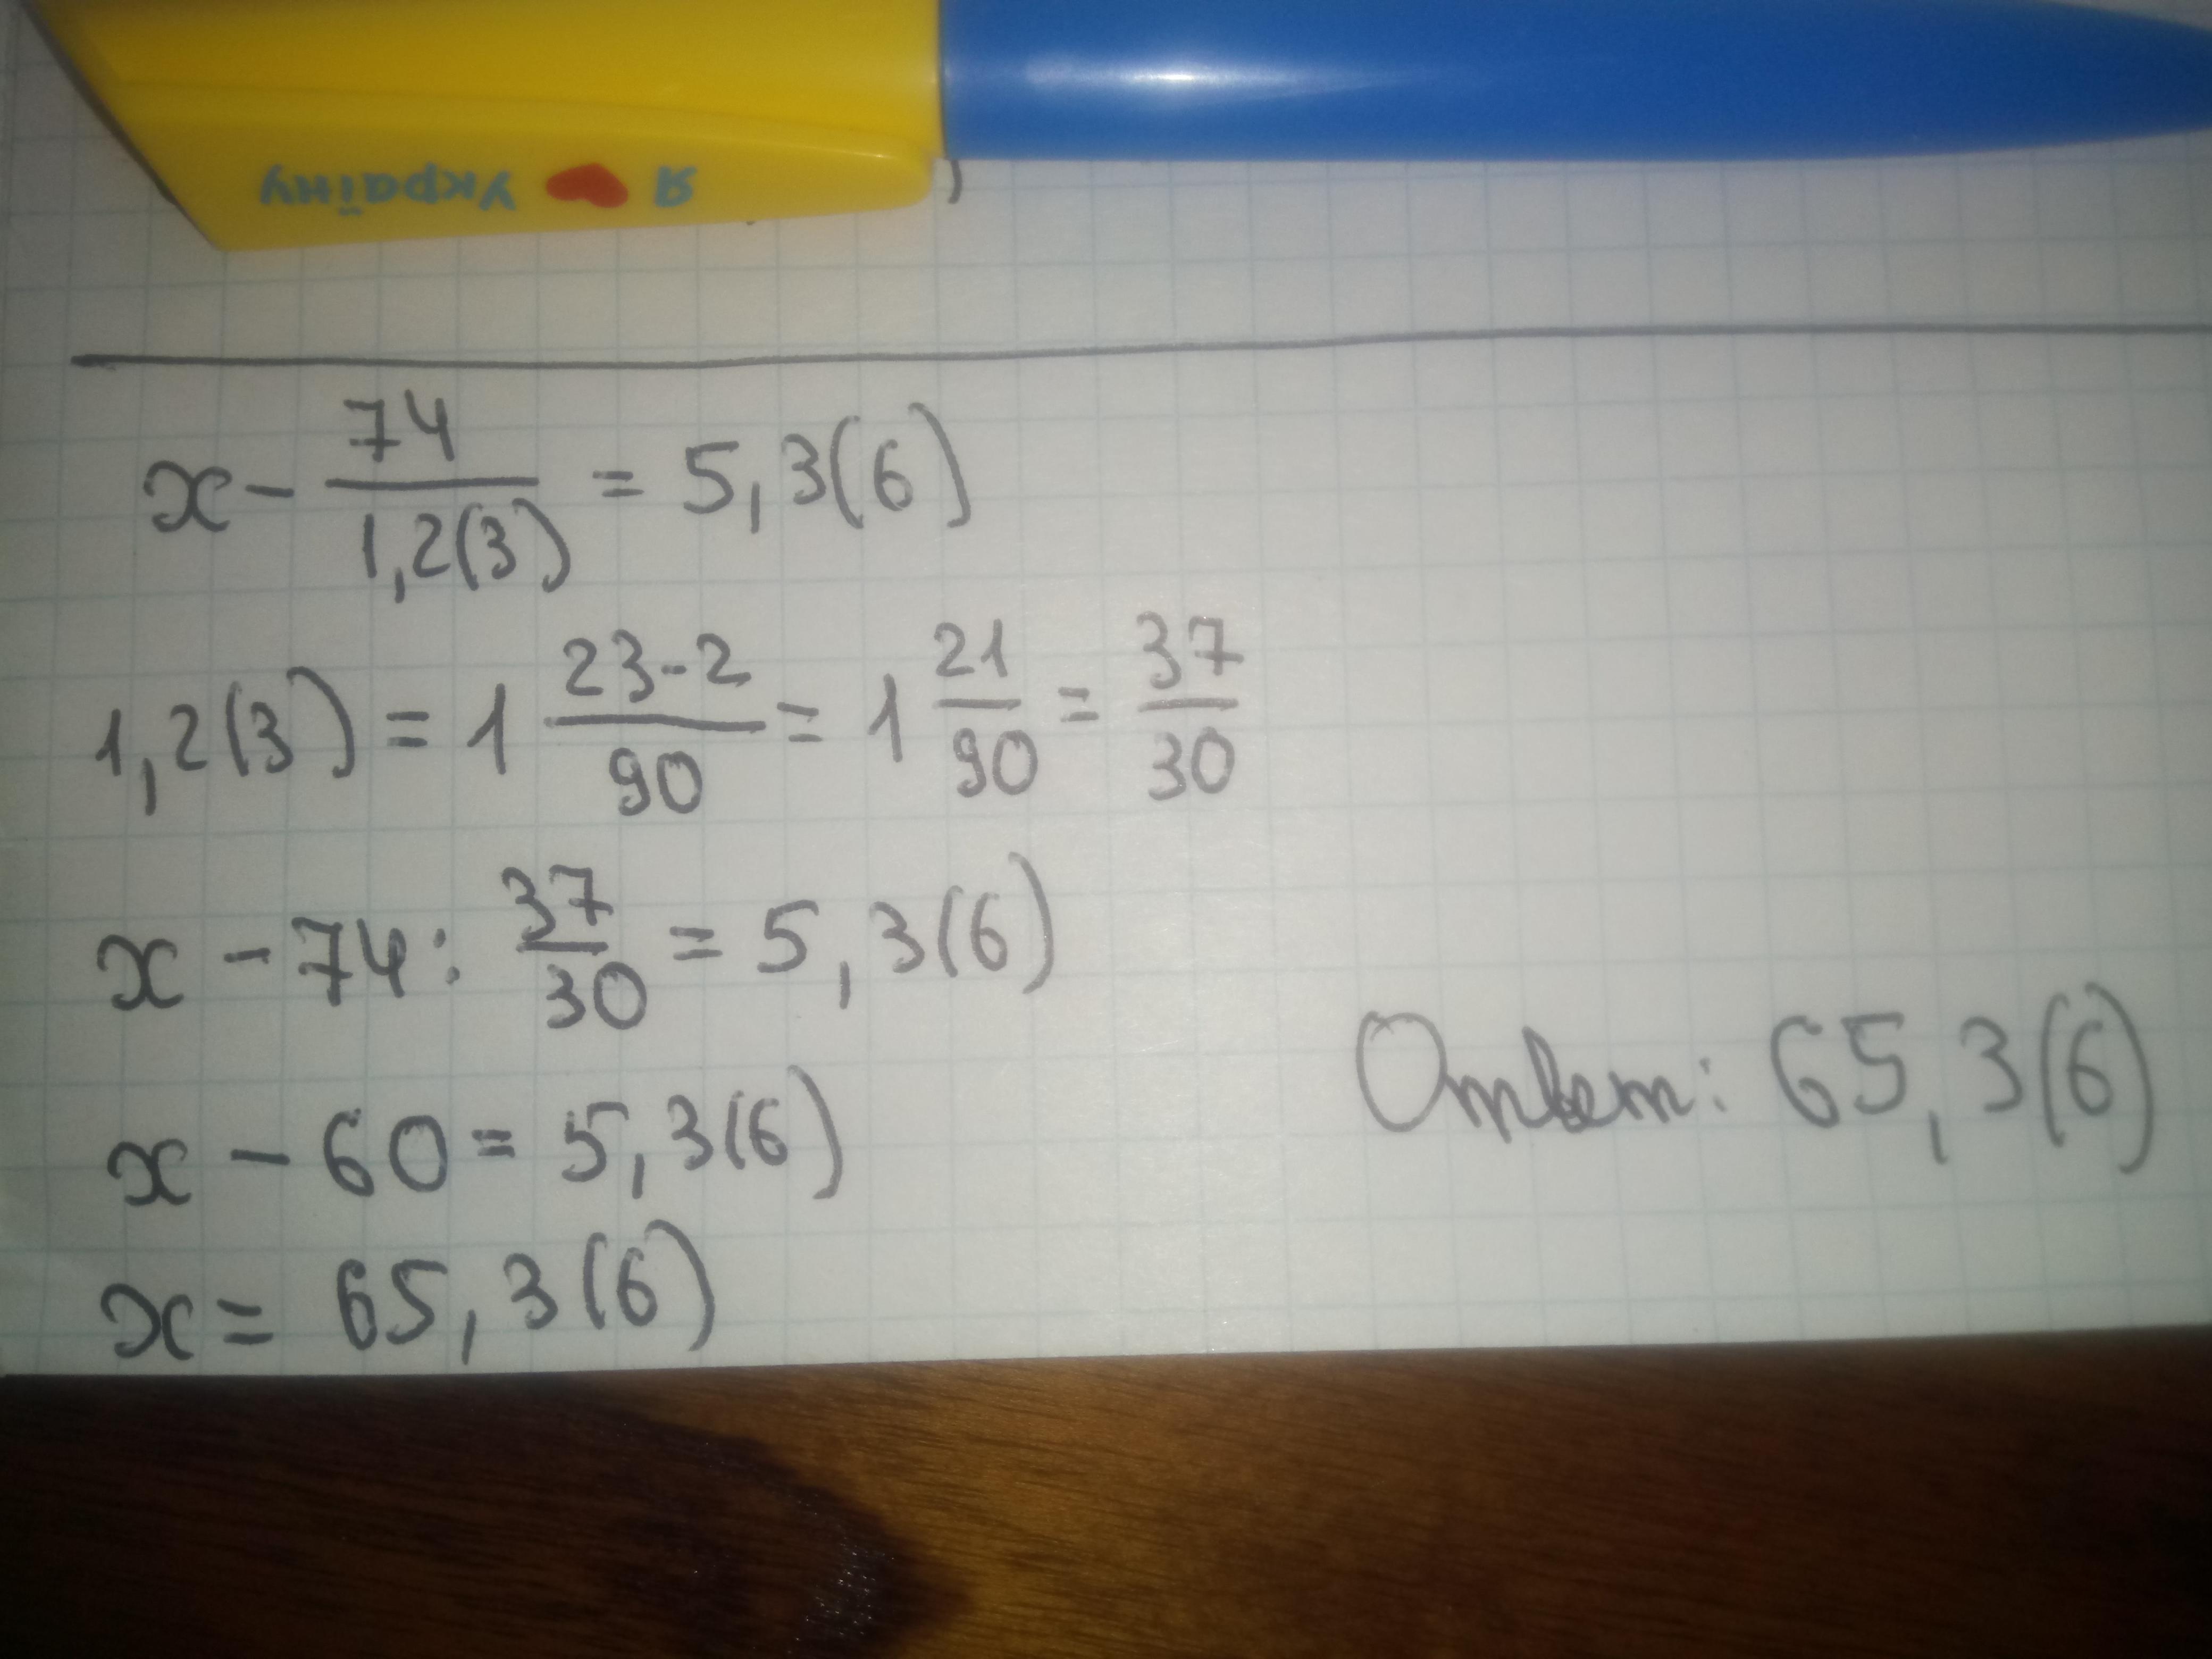 Я ❤ Україну
x - 74/1,2(3) = 5,3(6)
1,2(3) = 1 23-2/90 = 1 21/90 = 37/30
x - 74 : 37/30 = 5,3(6)
x - 60 = 5,3(6)
x = 65,3(6)
Ответ: 65,3(6)